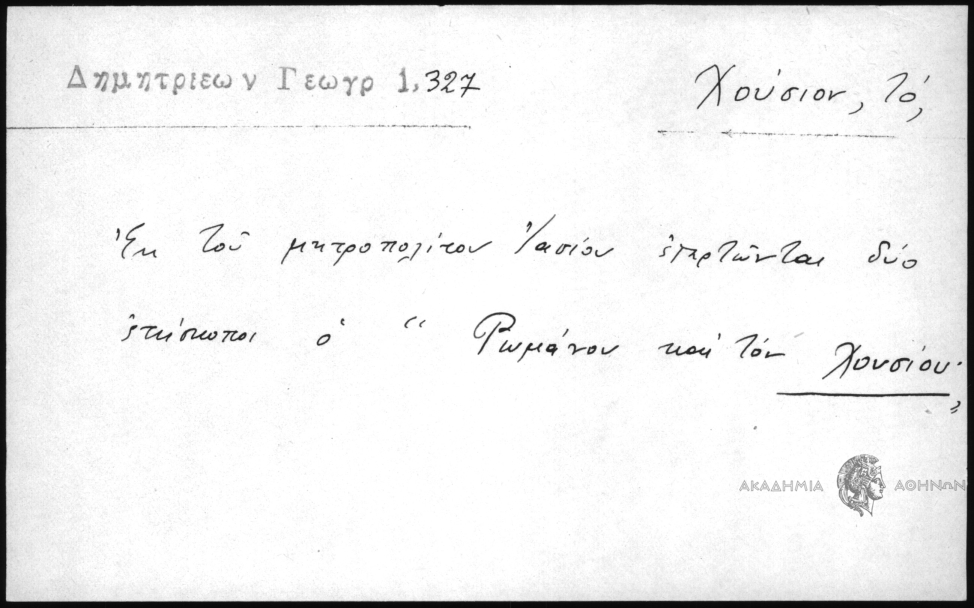 Δημητριεων Γεωγρ 1,327
Χούσιον, τό,
Ἐκ τοῦ μητροπολίτου Ἰασίου ἐξαρτῶνται δύο
ἐπίσκοποι ὁ “ Ῥωμάνου καὶ τόν Χουσίου·
”
ΑΚΑΔΗΜΙΑ ΑΘΗΝΩΝ